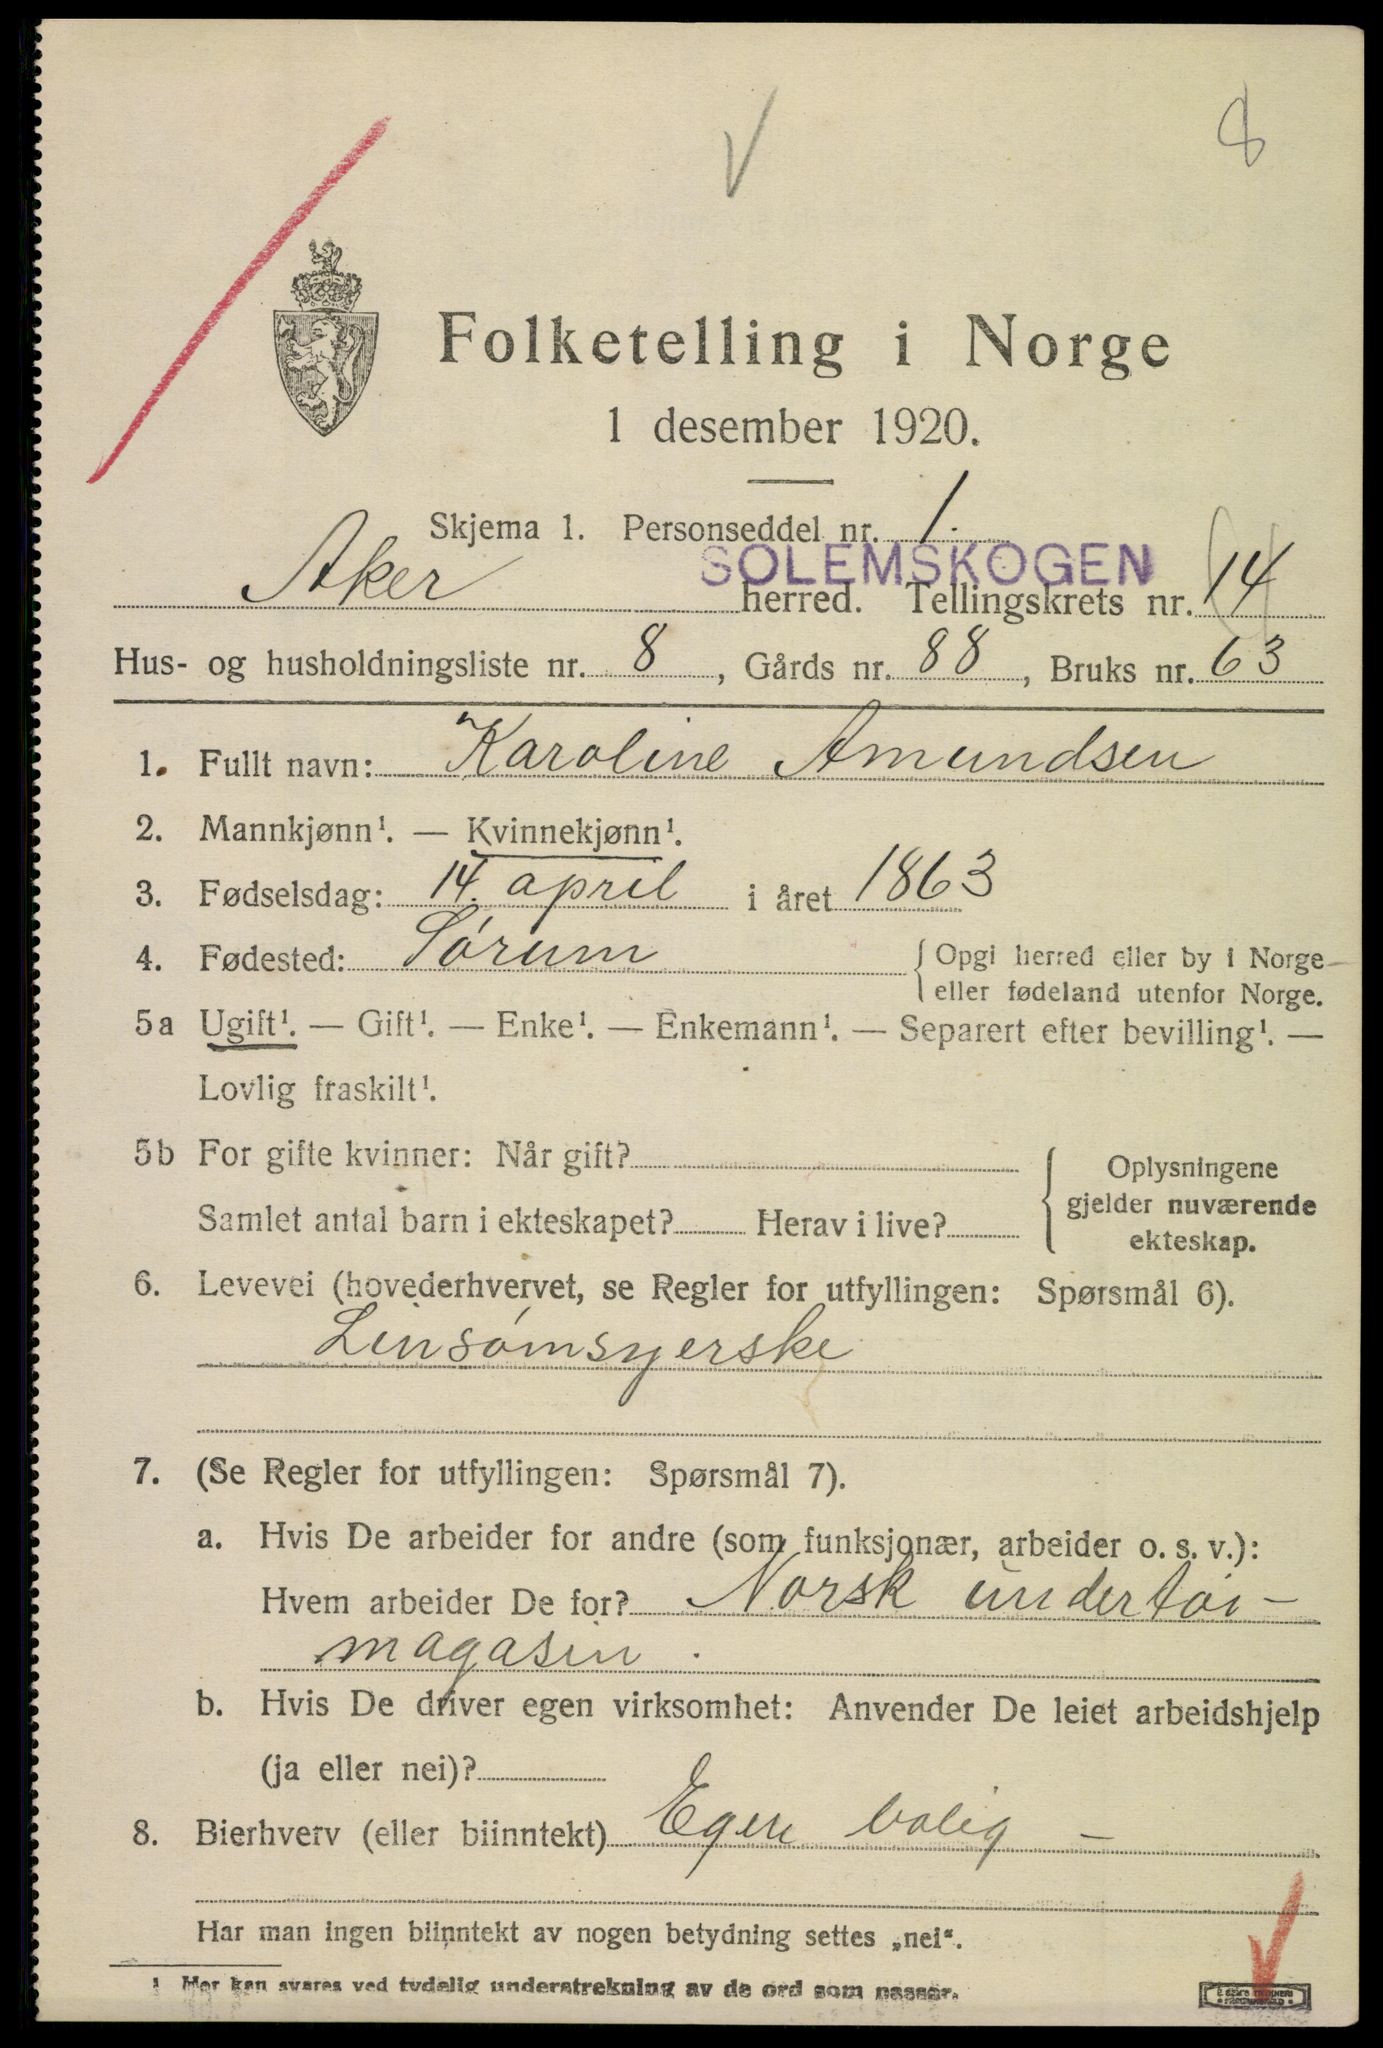 8
Folketelling i Norge
1 desember 1920.
Skjema 1. Personseddel nr. 1.
SOLEMSKOGEN
Aker herred. Tellingskrets nr. 14
Hus- og husholdningsliste nr. 8, Gårds nr. 88, Bruks nr. 63
1. Fullt navn: Karoline Amundsen
2. Mannkjønn¹. — Kvinnekjønn¹.
3. Fødselsdag: 14. april i året 1863
4. Fødested: Sórum { Opgi herred eller by i Norge
eller fødeland utenfor Norge.
5a Ugift¹. — Gift¹. — Enke¹. — Enkemann¹. — Separert efter bevilling¹. —
Lovlig fraskilt¹.
5b For gifte kvinner: Når gift?
Samlet antal barn i ekteskapet? Herav i live?
{ Oplysningene
gjelder nuværende
ekteskap.
6. Levevei (hovederhvervet, se Regler for utfyllingen: Spørsmål 6).
Linsómsyerske
7. (Se Regler for utfyllingen: Spørsmål 7).
a. Hvis De arbeider for andre (som funksjonær, arbeider o. s. v.):
Hvem arbeider De for? Norsk undertói-
magasin.
b. Hvis De driver egen virksomhet: Anvender De leiet arbeidshjelp
(ja eller nei)?
8. Bierhverv (eller biinntekt) Egen bolig —
Har man ingen biinntekt av nogen betydning settes „nei“.
1 Her kan svares ved tydelig understrekning av de ord som passer.